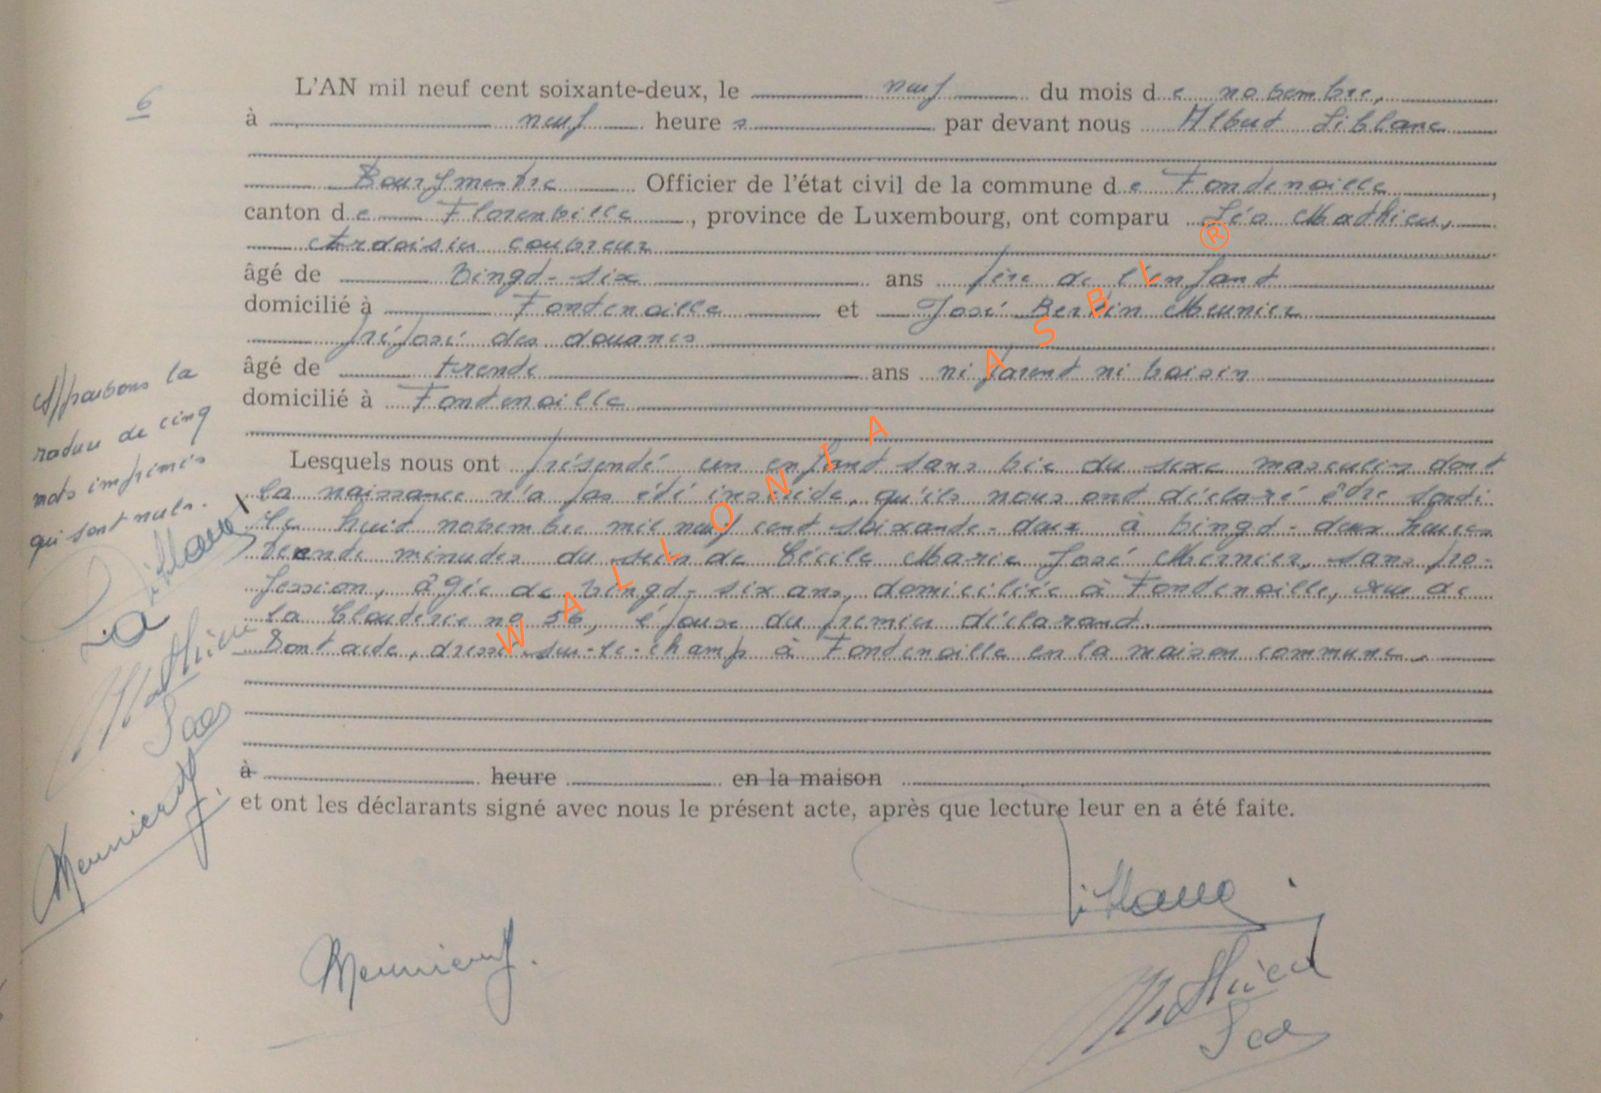 6
L'AN mil neuf cent soixante-deux, le neuf du mois de novembre,
à neuf heures par devant nous Albert Leblanc
Bourgmestre Officier de l'état civil de la commune de Fontenoille,
canton de Florenville, province de Luxembourg, ont comparu Léo Mathieu,
Ardoisier couvreur
âgé de vingt-six ans père de l'enfant
domicilié à Fontenoille et José Bertin Meunier
préposé des douanes
âgé de trente ans ni parent ni voisin
domicilié à Fontenoille
Lesquels nous ont présenté un enfant sans vie du sexe masculin dont
la naissance n'a pas été inscrite, qu'ils nous ont déclaré être sorti
le huit novembre mil neuf cent soixante-deux à vingt-deux heures
trente minutes du sein de Cécile Marie José Mernier, sans pro-
fession, âgée de vingt-six ans, domiciliée à Fontenoille, rue de
la Clouterie no 56, épouse du premier déclarant.
Dont acte, dressé sur-le-champ à Fontenoille en la maison commune.
à heure en la maison
et ont les déclarants signé avec nous le présent acte, après que lecture leur en a été faite.
Approuvons la
rature de cinq
mots imprimés
qui sont nuls.
Mathieu
Léo
Meunier J.
Meunier J.
Leblanc
Mathieu
Léo
WALLONIA ASBL ®